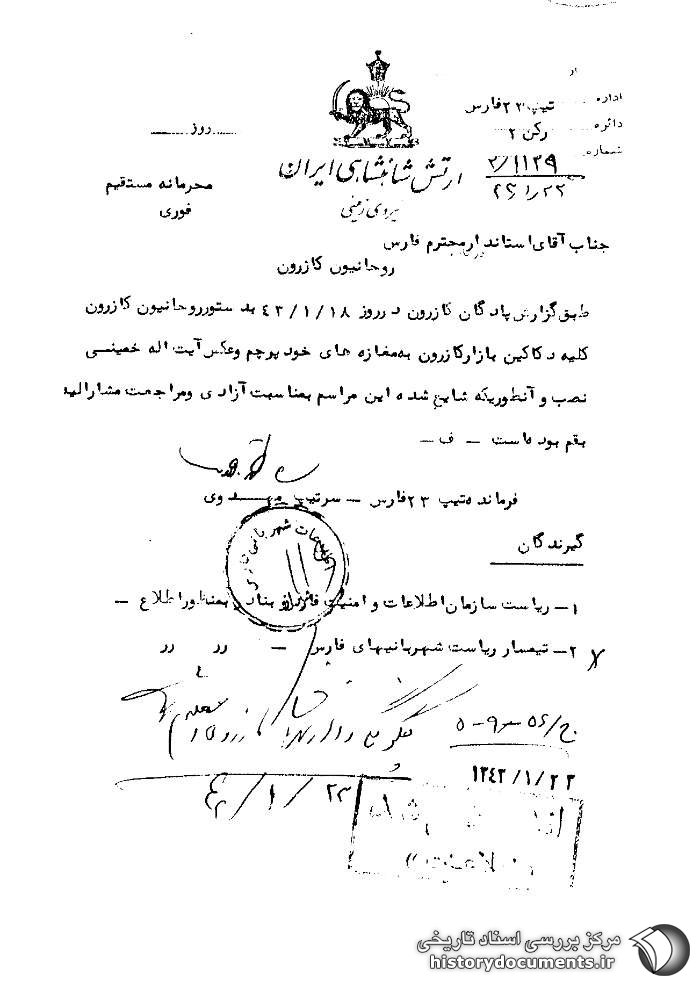 اداره تیپ ۲۳ فارس
دائره رکن ۲
شماره ۲/۱۱۲۹
روز
ارتش شاهنشاهی ایران
نیروی زمینی
محرمانه مستقیم
فوری
جناب آقای استاندار محترم فارس
روحانیون کازرون
طبق گزارش پادگان کازرون در روز ۴۳/۱/۱۸ بدستور روحانیون کازرون
کلیه دکاکین بازار کازرون به مغازه های خود پرچم و عکس آیت اله خمینی
نصب و آنطوریکه شایع شده این مراسم بمناسبت آزادی و مراجعت مشارالیه
بقم بوده است ــ ف ــ
فرمانده تیپ ۲۳ فارس ــ سرتیپ
گیرندگان
۱ــ ریاست سازمان اطلاعات و امنیت فارس و بنادر بمنظور اطلاع ــ
۲ــ تیمسار ریاست شهربانیهای فارس ــ رر رر
۱۳۴۳/۱/۲۳
۲۳/۱/۴۳
مرکز بررسی اسناد تاریخی
historydocuments.ir